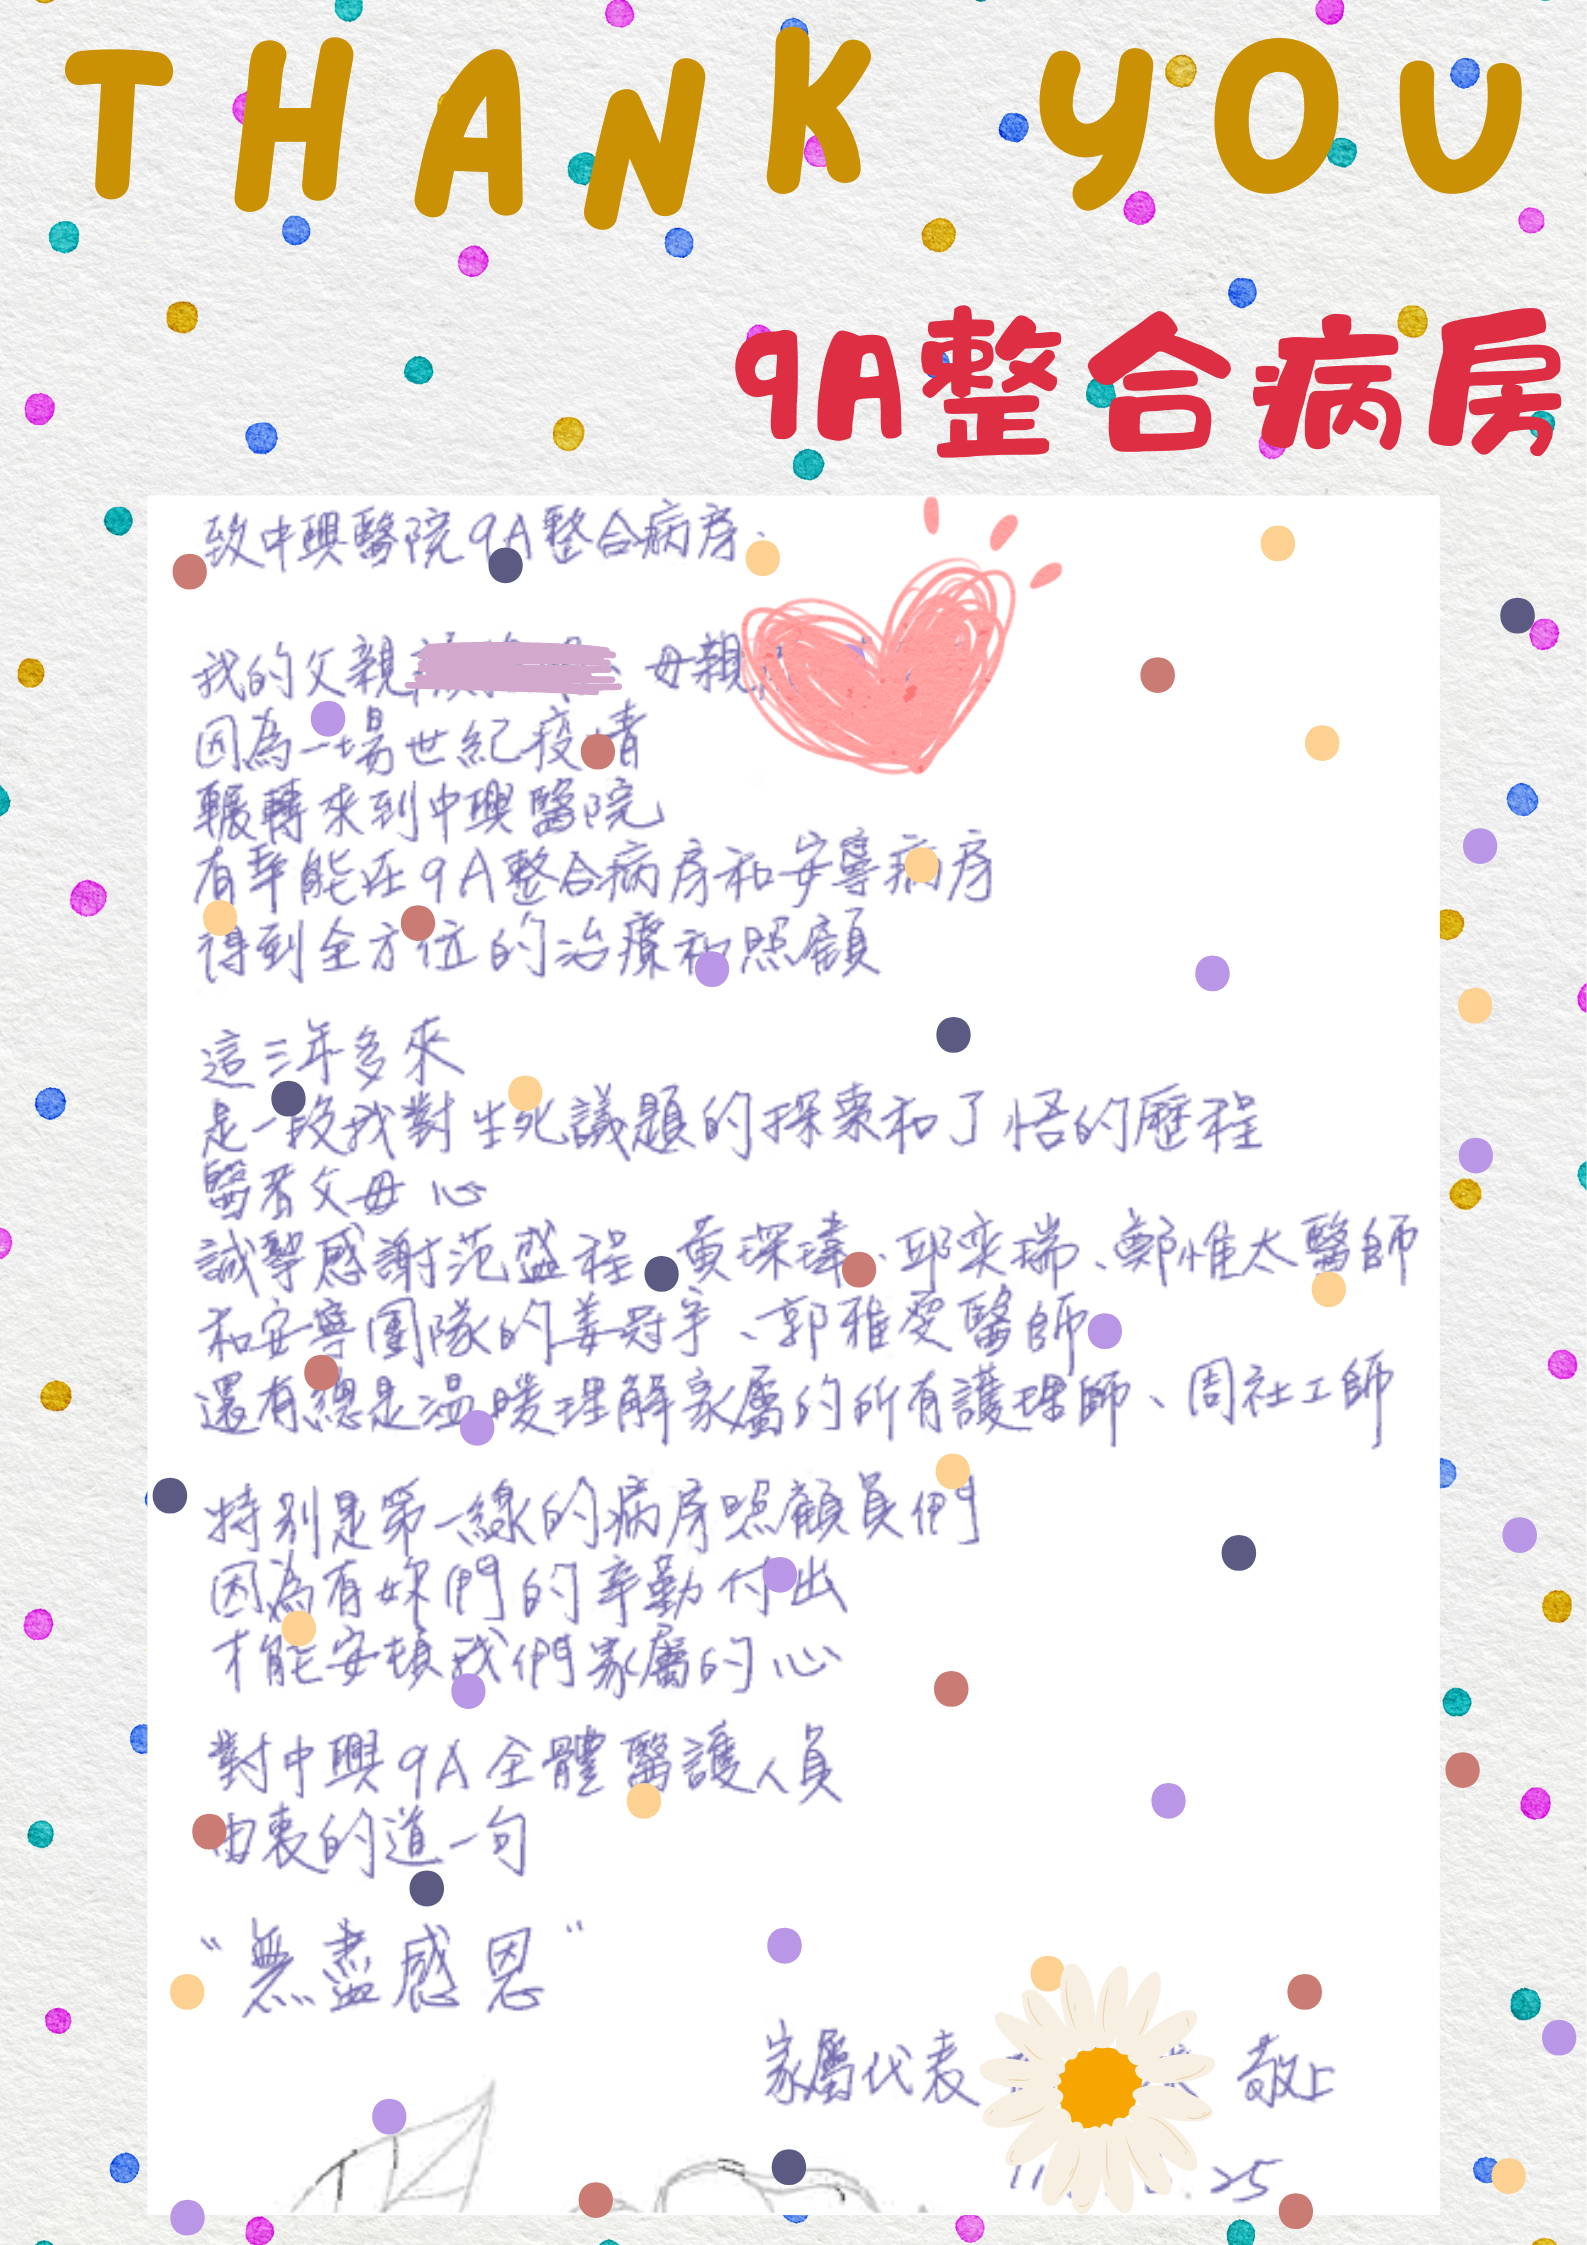 THANK YOU
9A整合病房
致中興醫院9A整合病房:
我的父親 、母親
因為一場世紀疫情
輾轉來到中興醫院
有幸能在9A整合病房和安寧病房
得到全方位的治療和照顧
這三年多來
是一段我對生死議題的探索和了悟的歷程
醫者父母心
誠摯感謝范盛程、黃琛瑋、邱奕瑞、鄭惟太醫師
和安寧團隊的姜冠宇、郭雅雯醫師
還有總是溫暖理解家屬的所有護理師、周社工師
特別是第一線的病房照顧員們
因為有妳們的辛勤付出
才能安頓我們家屬的心
對中興9A全體醫護人員
由衷的道一句
"無盡感恩"
家屬代表 敬上
25